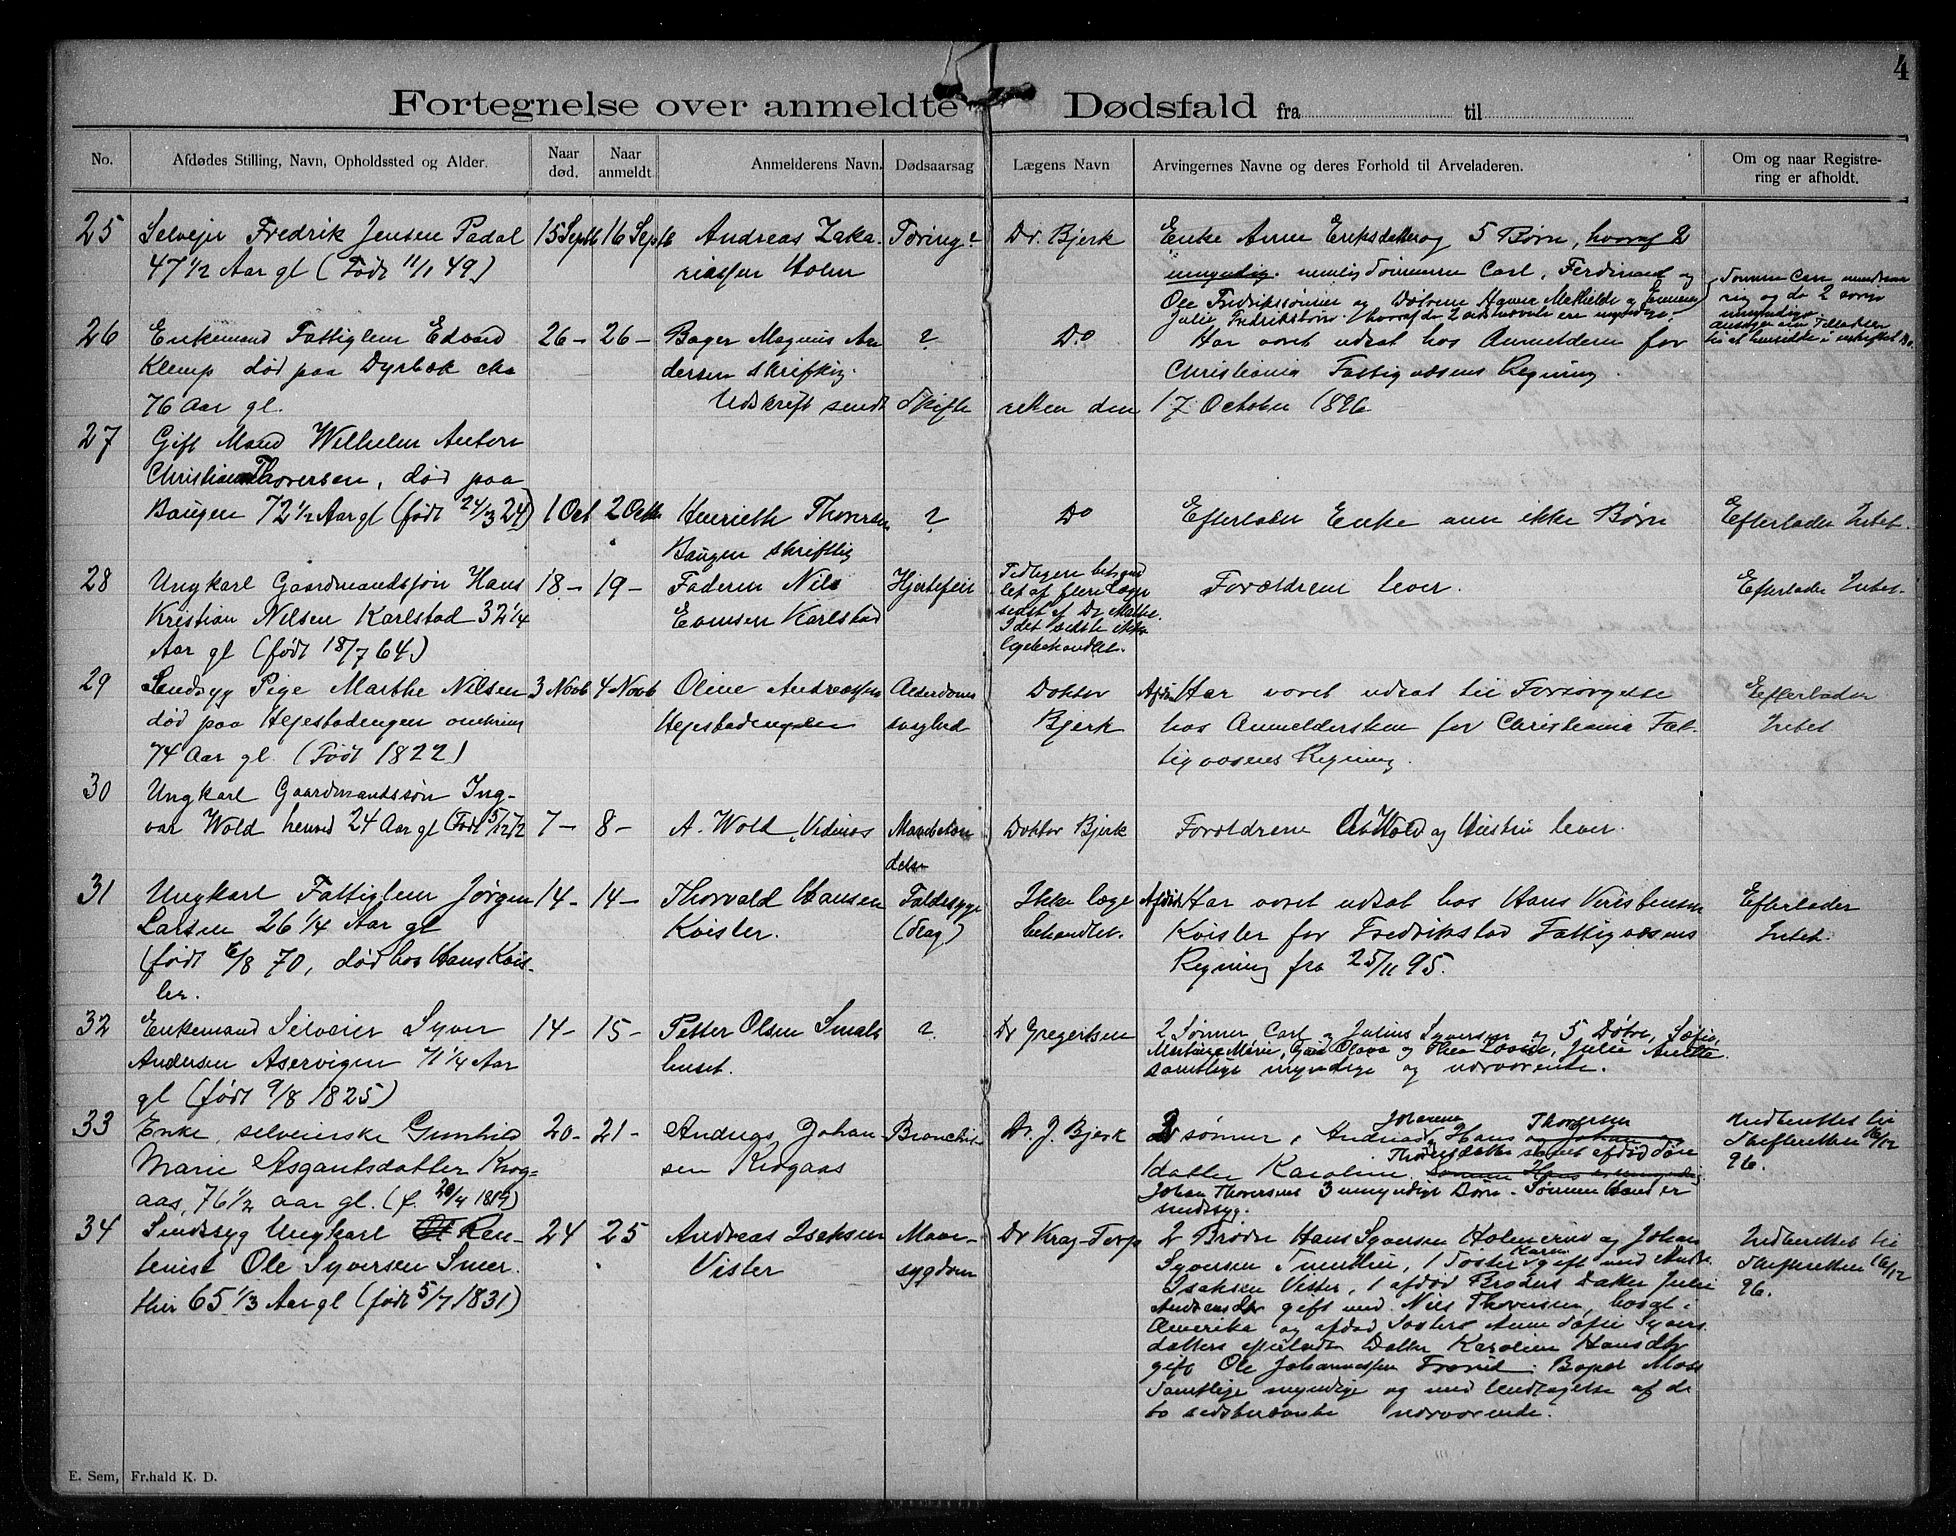 4
Fortegnelse over anmeldte Dødsfald fra til
No.
Afdødes Stilling, Navn, Opholdssted og Alder.
Naar død.
Naar anmeldt.
Anmelderens Navn.
Dødsaarsag
Lægens Navn
Arvingernes Navne og deres Forhold til Arveladeren.
Om og naar Registre-
ring er afholdt.
25
Selveier Fredrik Jensen Padal
47 1/2 Aar gl (Født 11/1 49)
15 Septb
16 Septb
Andreas Zaka-
riassen Holm
Tæring?
Dr. Bjerk
Enke Anne Eriksdatter og 5 Børn, hvoraf 2
umyndig. nemlig Sønnerne Carl, Ferdinand og
Ole Fredrikssønner og Døtrene Hanna Mathilde og
Julie hvoraf de 2 sidstnævnte ere umyndige.
Sønnen Carl
og de 2
umyndige.
26
Enkemand Fattiglem Edvard
Klemp død paa Dyrbæk cka
76 Aar gl.
26 –
26 –
Bager Magnus An
dersen skriftlig.
?
Do
Har været udsat hos Anmelderen for
Christiania Fattigvæsens Regning.
Udskrift sendt Skifte retten den 17 October 1896
27
Gift Mand Wilhelm Anton
Christian Thoresen, død paa
Baugen 72 1/2 Aar gl (født 24/3 24)
1 Oct
2 Octb
Henriette Thoresen
Baugen skriftlig
?
Do
Efterlader Enke men ikke Børn
Efterlader Intet.
28
Ungkarl Gaardmandssøn Hans
Kristian Nilsen Karlstad 32 1/4
Aar gl (født 18/7 64)
18 –
19 –
Faderen Nils
Evensen Karlstad
Hjertefeil
Tidligere behand
let af flere Læger
sidst af Dr
I det sidste ikke
lægebehandlet.
Forældrene lever.
Efterlader Intet.
29
Sindsyg Pige Marthe Nilsen
død paa Hejestadengen omkring
74 Aar gl. (Født 1822)
3 Novb
4 Novb
Oline Andreassen
Hejestadengen
Alderdoms
svaghed
Doktor
Bjerk
Afdøde Har været udsat til Forsørgelse
hos Anmeldersken for Christiania Fat-
tigvæsens Regning.
Efterlader
Intet
30
Ungkarl Gaardmandssøn Ing-
var Wold henved 24 Aar gl (Født 5/12 72
7 –
8 –
A. Wold,
Doktor Bjerk
Forældrene Wold og lever.
31
Ungkarl Fattiglem Jørgen
Larsen 26 1/4 Aar gl
(født 6/8 70, død hos Hans Kvis-
ler.
14 –
14 –
Thorvald Hansen
Kvisler.
Faldesyge
(Slag)
Ikke læge
behandlet.
Afdøde Har været udsat hos Hans Kristensen
Kvisler for Fredrikstad Fattigvæsens
Regning fra 25/11 95.
Efterlader
Intet.
32
Enkemand Selveier Syver
Andersen Aservigen 71 1/4 Aar
gl (født 9/8 1825)
14 –
15 –
Petter Olsen Smals
huset.
?
Dr Gregertsen
2 Sønner Carl og Julius Syversen og 5 Døtre, Sofie,
Martine Marie, Olava og Thea Lovise, Julie Anette
samtlige myndige og nærværende.
33
Enke, selveierske Gunhild
Marie Asgautsdatter Krog-
aas, 76 1/2 aar gl. (f. 20/4 1819)
20 –
21 –
Andreas Johan
sen Krogaas
Bronchit-
Dr. J. Bjerk
2 sønner, Andreas Johansen og Hans Thoresen og Johan og
1 datter Karoline Thoresdatter samt afdød søn
Johan Thoresens 3 umyndige Børn. Sønnen Hans er
sindssyg.
Indberettet til
Skifteretten 16/12
96.
34
Sindssyg Ungkarl Ren-
tenist Ole Syversen Smer
thir 65 1/3 Aar gl (født 5/7 1831)
24
25
Andreas Isaksen
Vister
Mave-
sygdom
Dr Krag-Torp
2 Brødre Hans Syversen Holmerud og Johan
Syversen Smerthir, 1 Søster Karen gift med Andr.
Isaksen Vister, 1 afdød Broders Datter Julie
gift med Nils Thoresen, bosat i
Amerika og afdød Søsters Anne Sofie Syvers
datters efterladte Datter Karoline Hansdtr
gift Ole Johannessen Bopæl Moss
Samtlige myndige og med Undtagelse af de
to sidstnævnte nærværende.
Indberettet til
Skifteretten 16/12
96.
E. Sem, Fr.hald K. D.